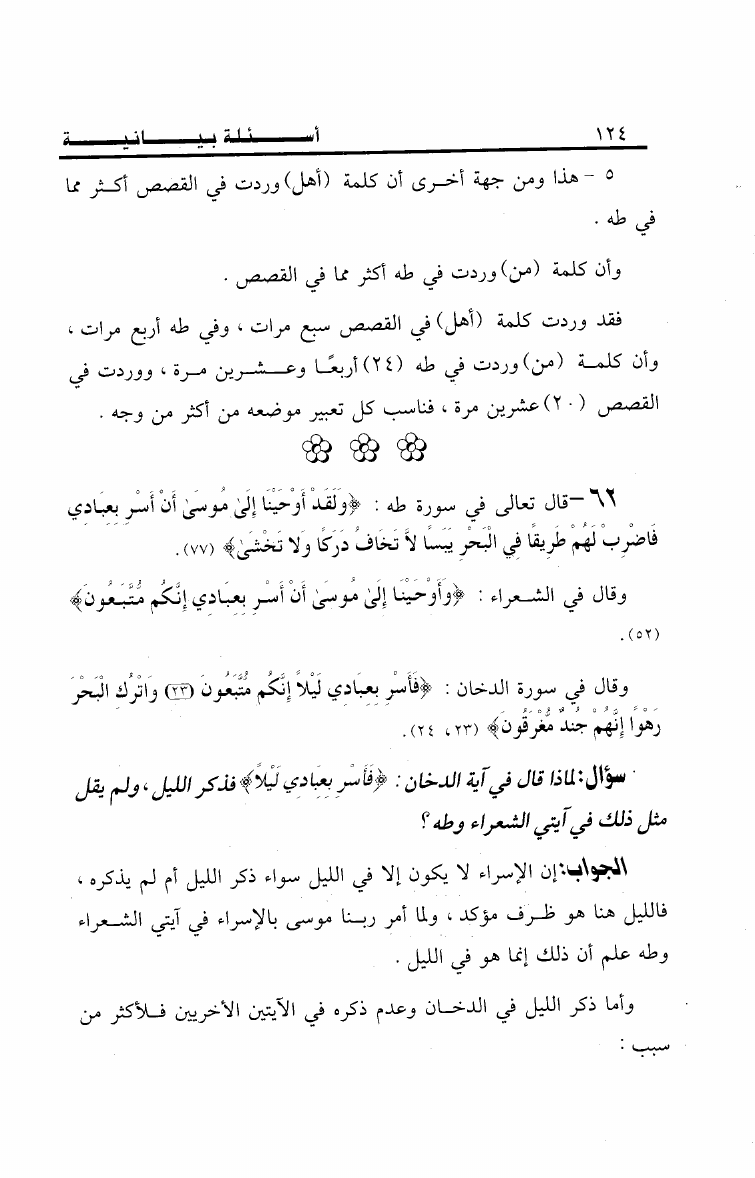 ١٢٤ أسـئلة بيـانيـة
٥ - هذا ومن جهة أخرى أن كلمة (أهل) وردت في القصص أكثر مما
في طه .
وأن كلمة (من) وردت في طه أكثر مما في القصص .
فقد وردت كلمة (أهل) في القصص سبع مرات ، وفي طه أربع مرات ،
وأن كلمة (من) وردت في طه (٢٤) أربعًا وعشرين مرة ، ووردت في
القصص (٢٠) عشرين مرة ، فناسب كل تعبير موضعه من أكثر من وجه .
٦٢ – قال تعالى في سورة طه : ﴿وَلَقَدْ أَوْحَيْنَا إِلَىٰ مُوسَىٰ أَنْ أَسْرِ بِعِبَادِي
فَاضْرِبْ لَهُمْ طَرِيقًا فِي الْبَحْرِ يَبَسًا لاَّ تَخَافُ دَرَكًا وَلَا تَخْشَىٰ﴾ (٧٧).
وقال في الشعراء : ﴿وَأَوْحَيْنَا إِلَىٰ مُوسَىٰ أَنْ أَسْرِ بِعِبَادِي إِنَّكُم مُّتَّبَعُونَ﴾
(٥٢).
وقال في سورة الدخان : ﴿فَأَسْرِ بِعِبَادِي لَيْلاً إِنَّكُم مُّتَّبَعُونَ (٢٣) وَاتْرُكِ الْبَحْرَ
رَهْوًا إِنَّهُمْ جُندٌ مُّغْرَقُونَ﴾ (٢٣ ، ٢٤).
سؤال: لماذا قال في آية الدخان : ﴿فَأَسْرِ بِعِبَادِي لَيْلاً﴾ فذكر الليل ، ولم يقل
مثل ذلك في آيتي الشعراء وطه ؟
الجواب: إن الإسراء لا يكون إلا في الليل سواء ذكر الليل أم لم يذكره ،
فالليل هنا هو ظرف مؤكد ، ولما أمر ربنا موسى بالإسراء في آيتي الشعراء
وطه علم أن ذلك إنما هو في الليل .
وأما ذكر الليل في الدخان وعدم ذكره في الآيتين الأخريين فلأكثر من
سبب :